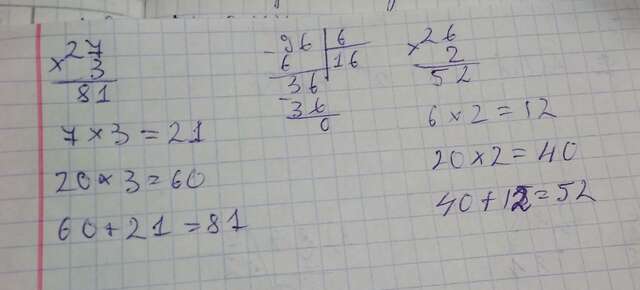 × 27
3
81
7 × 3 = 21
20 × 3 = 60
60 + 21 = 81
- 96 | 6
6 | 16
- 36
36
0
× 26
2
52
6 × 2 = 12
20 × 2 = 40
40 + 12 = 52